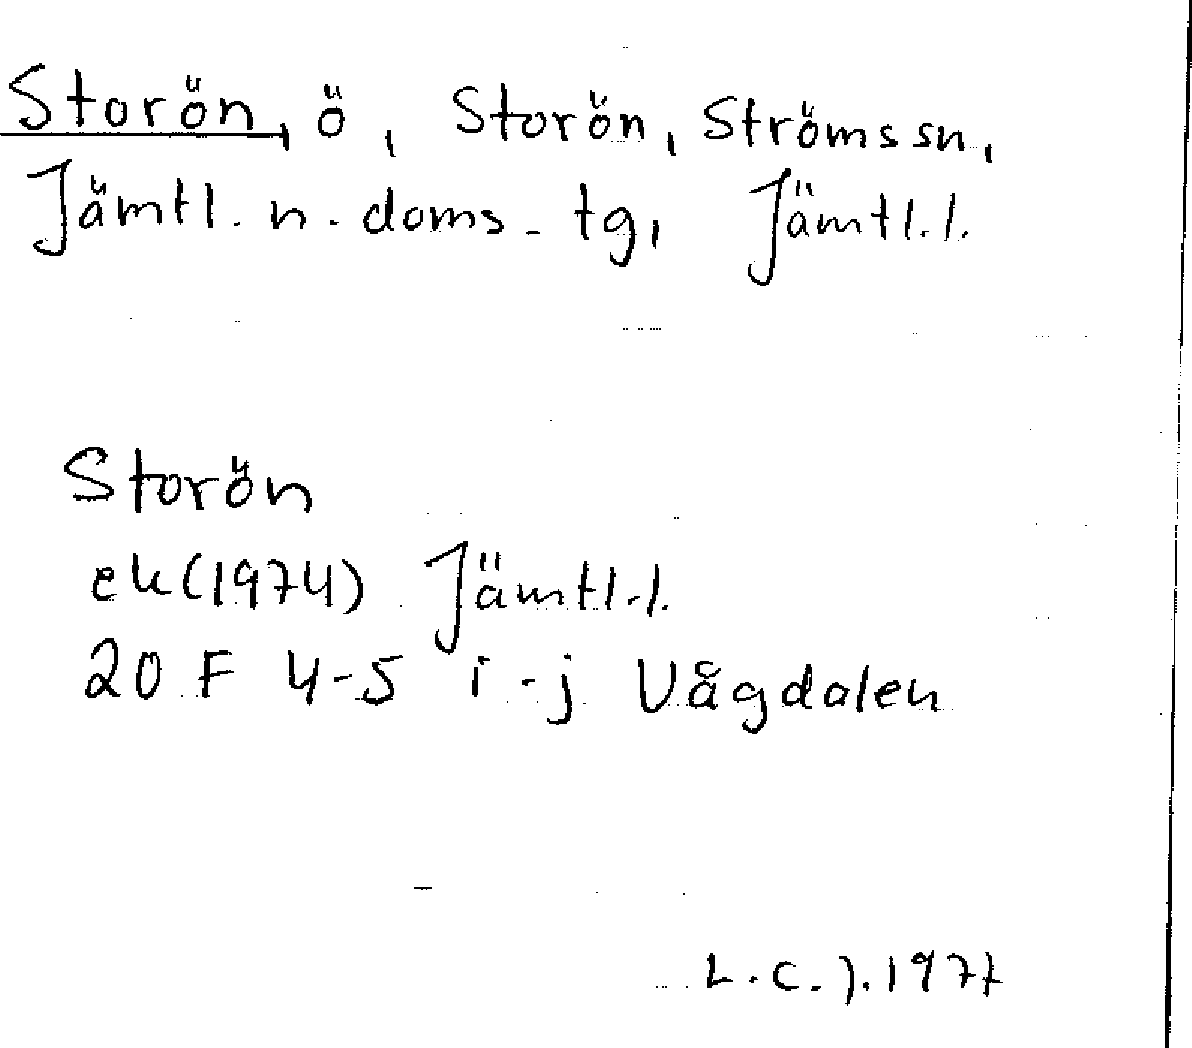 Storön, ö, Storön, Ströms sn,
Jämtl. n. doms. tg, Jämtl. l.
Storön
ek (1974) Jämtl. l.
20 F 4-5 i-j Vågdalen
L.C.J. 1977